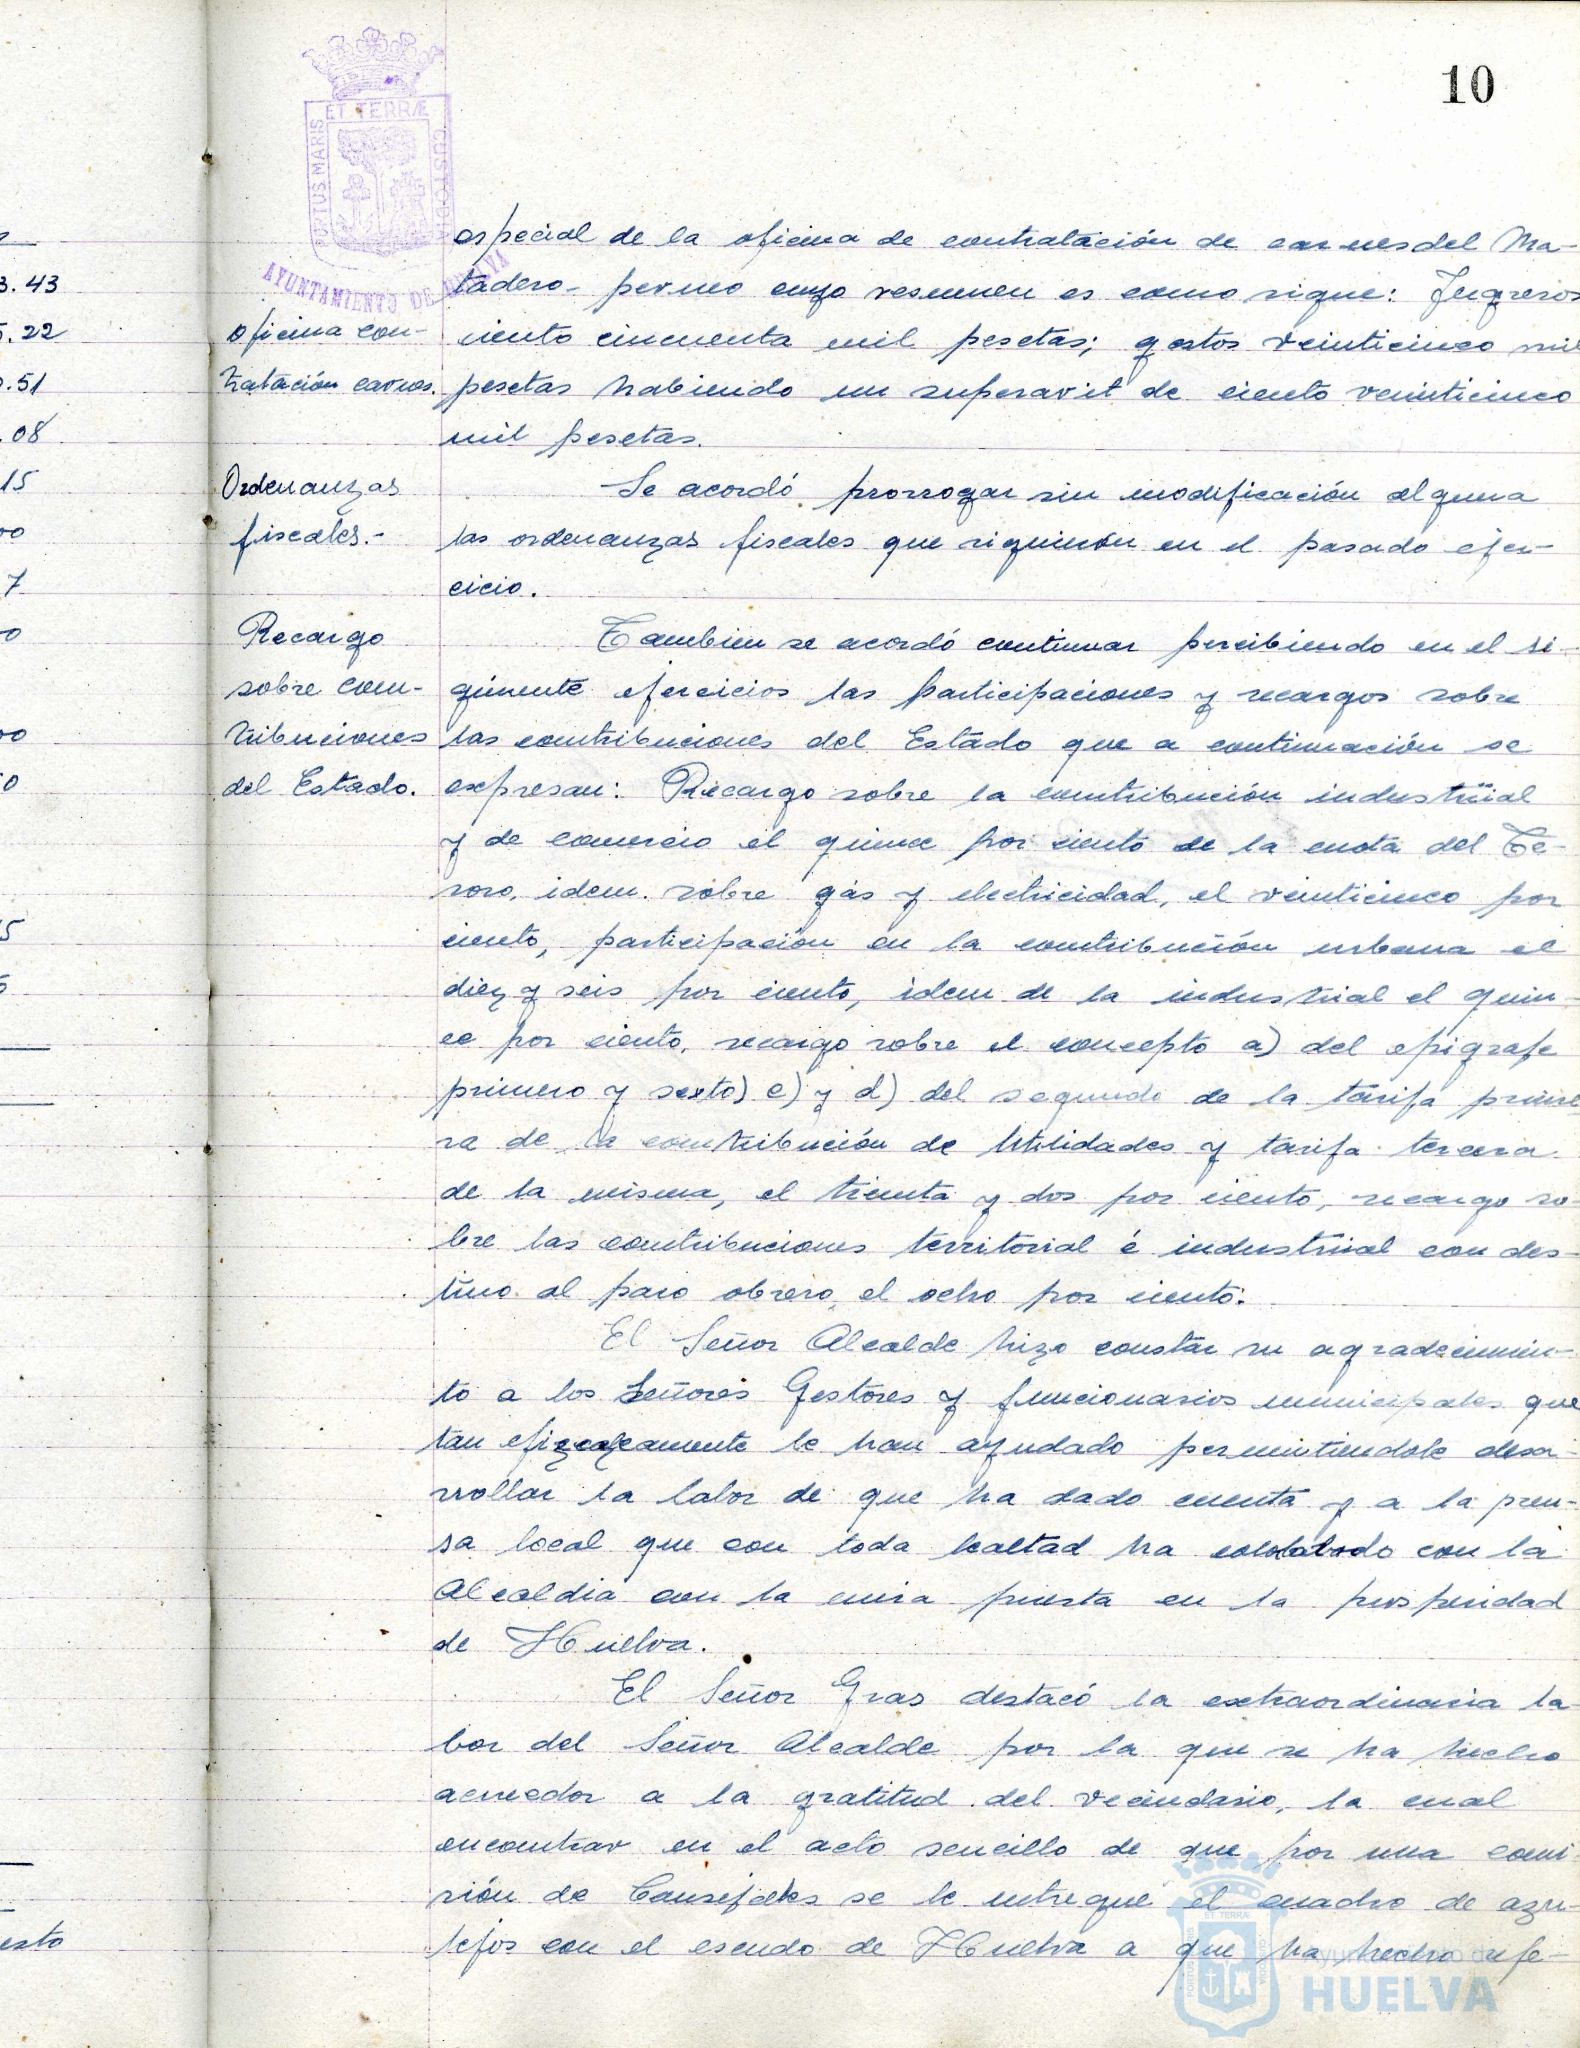 10
ET TERRÆ
PORTUS MARIS
CUSTODIA
AYUNTAMIENTO DE HUELVA
3.43
.22
.51
.08
15
00
7
esto
oficina con-
tratación carnes.
Ordenanzas
fiscales.-
Recargo
sobre con-
tribuciones
del Estado.
especial de la oficina de contratación de carnes del Ma-
tadero- cuyo resumen es como sigue: Ingresos
ciento cincuenta mil pesetas; gastos veinticinco mil
pesetas habiendo un superavit de ciento veinticinco
mil pesetas.
Se acordó prorrogar sin modificación alguna
las ordenanzas fiscales que siguieron en el pasado ejer-
cicio.
Tambien se acordó continuar percibiendo en el si-
guiente ejercicios las participaciones y recargos sobre
las contribuciones del Estado que a continuación se
expresan: Recargo sobre la contribución industrial
y de comercio el quince por ciento de la cuota del Te-
soro, idem. sobre gas y electricidad, el veinticinco por
ciento, participación en la contribución urbana el
diez y seis por ciento, idem de la industrial el quin-
ce por ciento, recargo sobre el concepto a) del epigrafe
primero y sexto) c) y d) del segundo de la tarifa prime
ra de la contribución de Utilidades y tarifa tercera
de la misma, el treinta y dos por ciento, recargo so-
bre las contribuciones territorial é industrial con des-
tino al paro obrero, el ocho por ciento.
El Señor Alcalde hizo constar su agradecimien-
to a los Señores Gestores y funcionarios municipales que
tan le han ayudado permitiendole desa-
rrollar la labor de que ha dado cuenta y a la pren-
sa local que con toda lealtad ha con la
Alcaldia con la mira puesta en la prosperidad
de Huelva.
El Señor Gras destacó la extraordinaria la-
bor del Señor Alcalde por la que se ha hecho
acreedor a la gratitud del vecindario, la cual
encontrar en el acto sencillo de que por una comi-
sión de Concejales se le entregue el cuadro de azu-
lejos con el escudo de Huelva a que ha hecho refe-
Ayuntamiento de
HUELVA